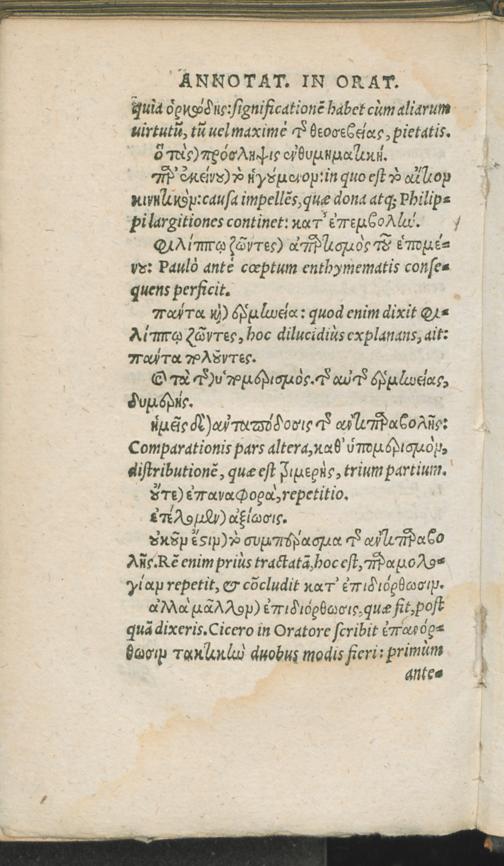 ANNOTAT. IN ORAT.
quia ὁρκώδης: significationē habet cùm aliarum
uirtutū, tū uel maximè τῆς θεοσεβείας, pietatis.
ὅ τὰς) πρόσληψις ἐνθυμηματική.
παρ' ἐκείνου) τὸ ἡγούμενον: in quo est τὸ αἴτιον
κινητικὸν: causa impellēs, quæ dona atq; Philip-
pi largitiones continet: κατ' ἐπεμβολὴν.
Φιλίππῳ ζῶντες) ἀπαρτισμὸς τοῦ ἑπομέ-
νου: Paulò antè cœptum enthymematis conse-
quens perficit.
πάντα καὶ) ἑρμηνεία: quod enim dixit Φι-
λίππῳ ζῶντες, hoc dilucidiùs explanans, ait:
πάντα πλοῦντες.
καὶ τὰ τοῦ) ὑπομερισμὸς. τῆς αὐτῆς ἑρμηνείας,
διμερὴς.
ἡμεῖς δὲ) ἀνταπόδοσις τῆς ἀντιπαραβολῆς:
Comparationis pars altera, καθ' ὑπομερισμὸν,
distributionē, quæ est τριμερὴς, trium partium.
οὔτε) ἐπαναφορὰ, repetitio.
ἐπέλθωμεν) ἀξίωσις.
οὐκοῦν ἔστιν) τὸ συμπέρασμα τῆς ἀντιπαραβο
λῆς. Rē enim priùs tractatā, hoc est, παραμολο-
γίαν repetit, & cōcludit κατ' ἐπιδιόρθωσιν.
ἀλλὰ μᾶλλον) ἐπιδιόρθωσις, quæ fit, post
quā dixeris. Cicero in Oratore scribit ἐπανόρ-
θωσιν τακτικὴν duobus modis fieri: primùm
ante-